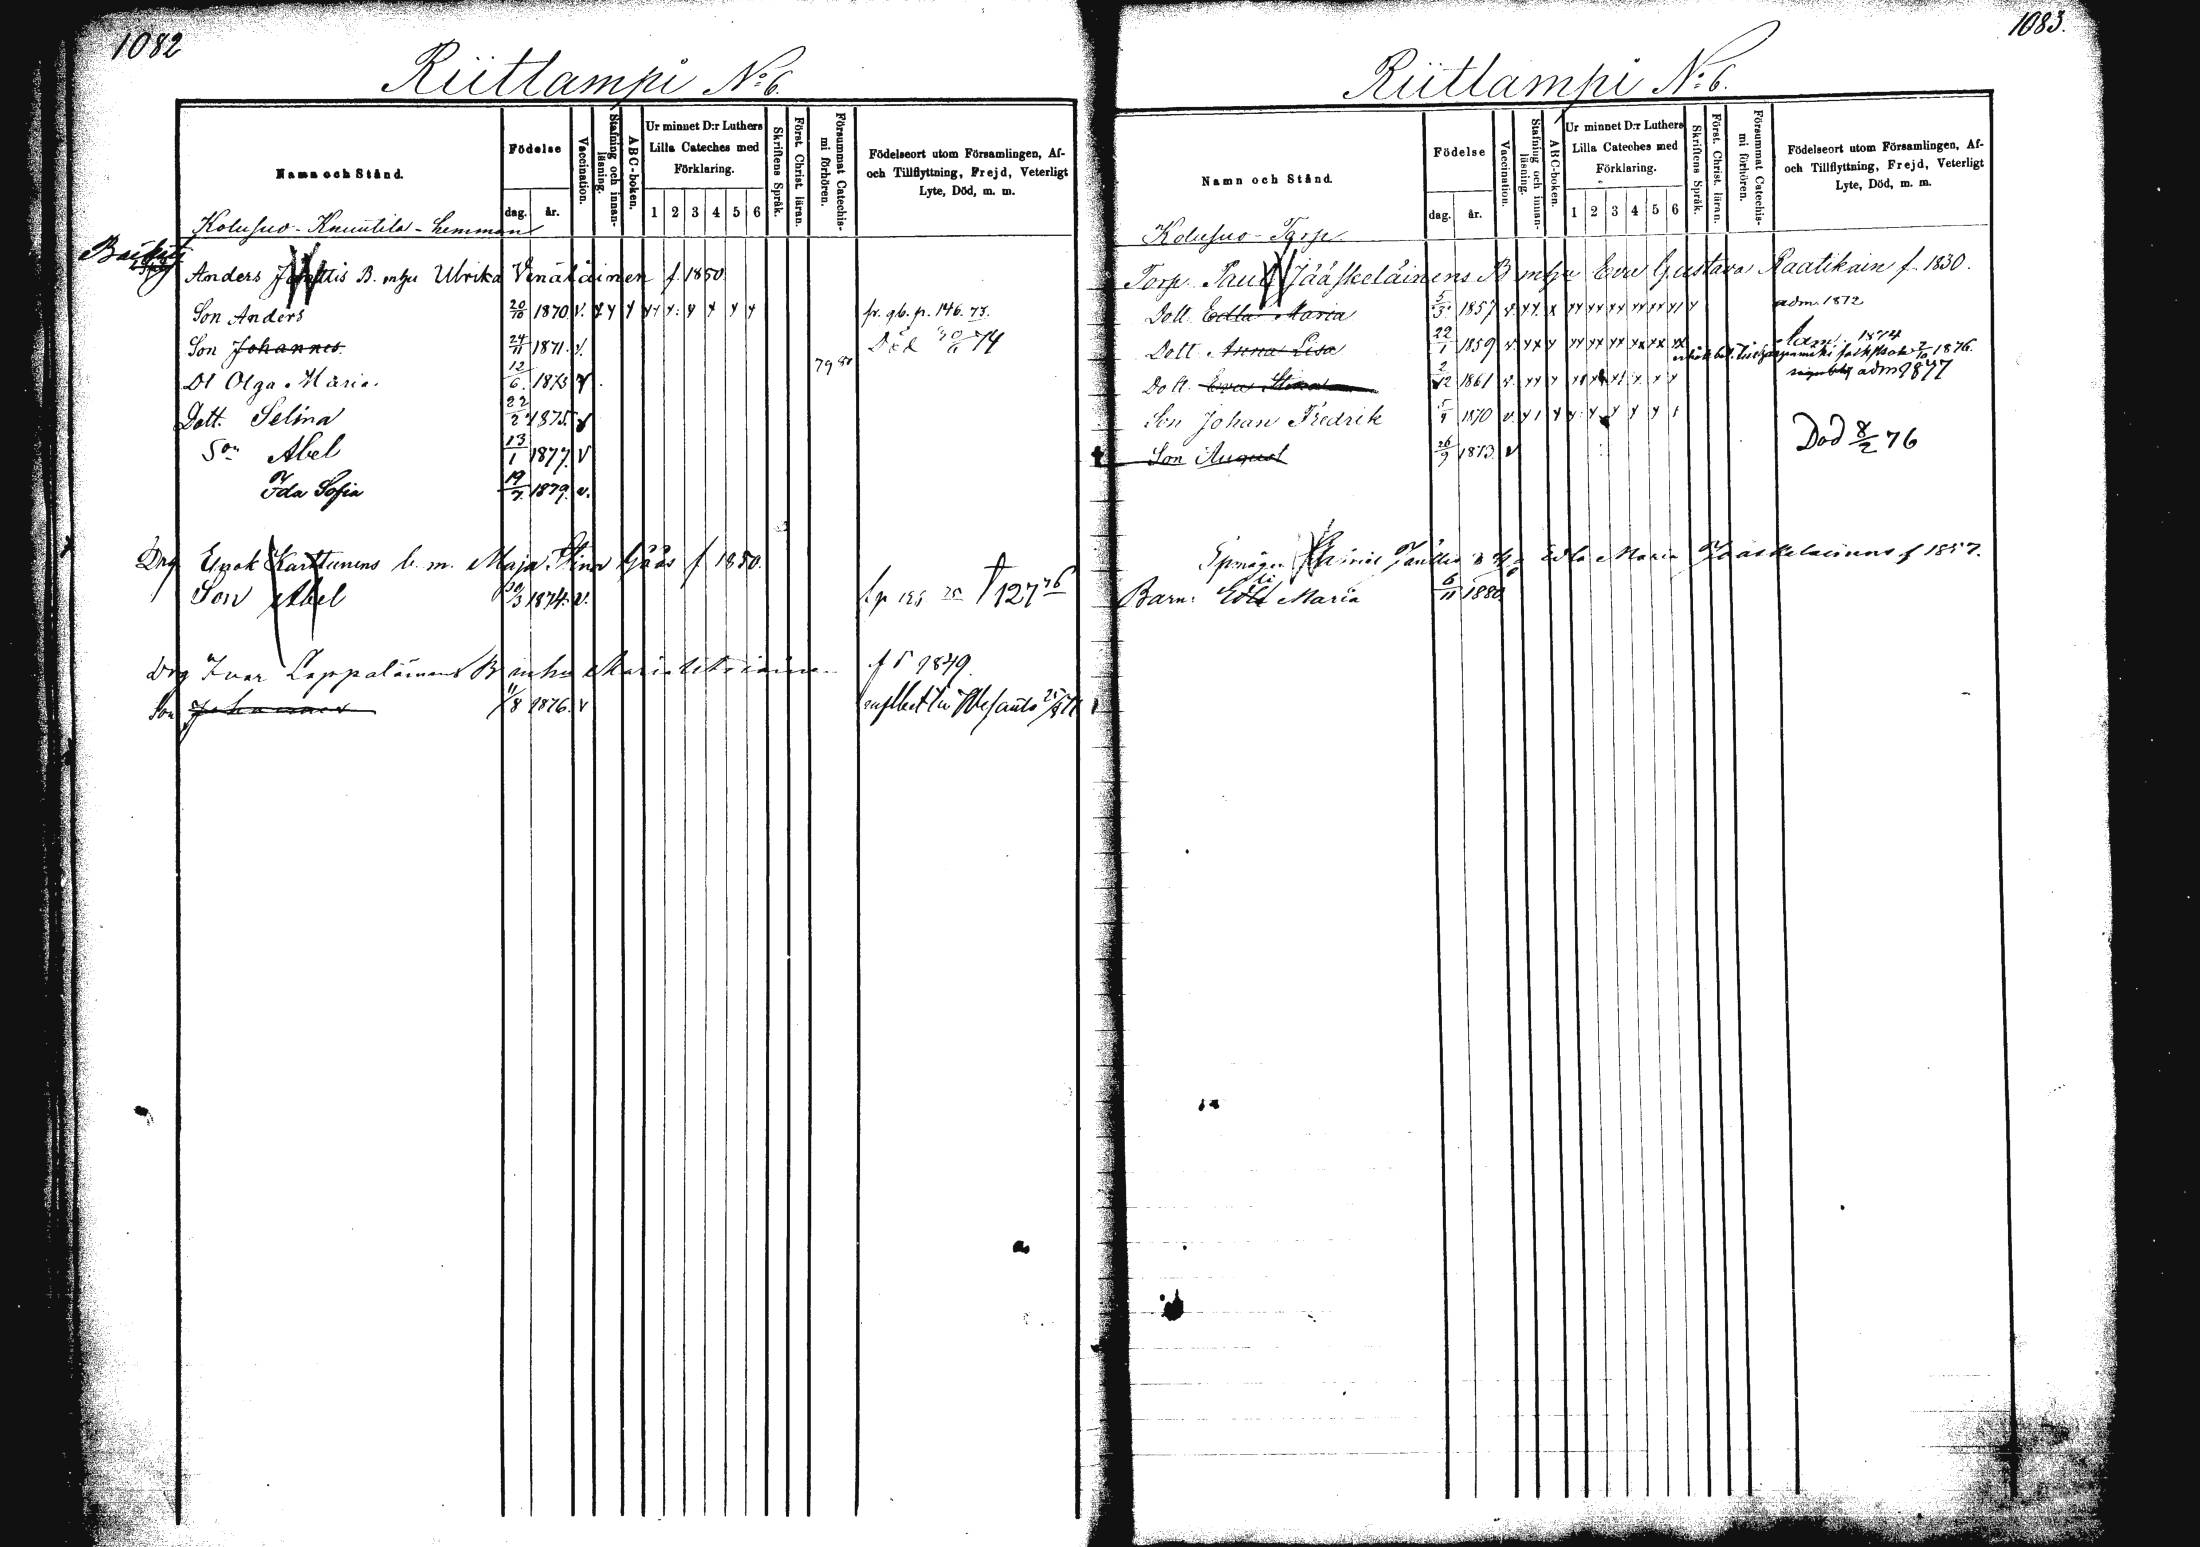 1082
Riitlampi No 6.
Namn och Stånd.
Födelse
dag.
år.
Vaccination.
Stafning och innan-läsning.
ABC-boken.
Ur minnet D:r Luthers
Lilla Cateches med
Förklaring.
1 2 3 4 5 6
Skriftens Språk.
Först. Christ. läran.
Försummat Catechis-mi förhören.
Födelseort utom Församlingen, Af-
och Tillflyttning, Frejd, Veterligt
Lyte, Död, m. m.
Kolusuo - Knuutila - hemman
Anders B. m hu Ulrika Venäläinen f. 1850
Son Anders 20/10 1870 v. fr. gb. p. 146. 73.
Son Johannes 24/11 1871. v. Död 74
79 80
Dl Olga Maria 12/6. 1873 v.
Dott. Selina 22/2 1875. v
Son Abel 13/1 1877. v
Ida Sofia 19/7. 1879. v.
Drg Enok Karttunens b. m. Maja Stina Gåås f 1850.
Son Abel 30/3 1874. v. 127 76
Drg Ivar Lappalainens B m hu Maria f 1849
Son Johannes 11/8 1876. v
1083.
Riitlampi No 6.
Namn och Stånd.
Födelse
dag.
år.
Vaccination.
Stafning och innan-läsning.
ABC-boken.
Ur minnet D:r Luthers
Lilla Cateches med
Förklaring.
1 2 3 4 5 6
Skriftens Språk.
Först. Christ. läran.
Försummat Catechis-mi förhören.
Födelseort utom Församlingen, Af-
och Tillflyttning, Frejd, Veterligt
Lyte, Död, m. m.
Kolusuo - Torp.
Torp. Paul Jääskeläinens B m hu Eva Gustava Raatikain f. 1830.
Dott. Edla Maria 5/3 1857 v. adm. 1872
Dott Anna Lisa 22/1 1859 v. 1874
2/10 1876.
Dott. Eva Stina 2/12 1861 v. adm 1877
Son Johan Fredrik 1870 v.
Son August 26/9 1873 v Död 8/2 76
Edla Maria Jääskeläinens f 1857.
Barn: Edla Maria 6/11 1880.